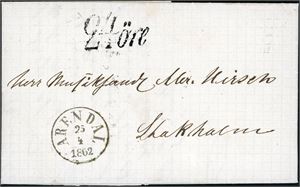 24 öre
Herr Musikhandl. Abr. Hirsch
Stokholm
ARENDAL
25
4
1862